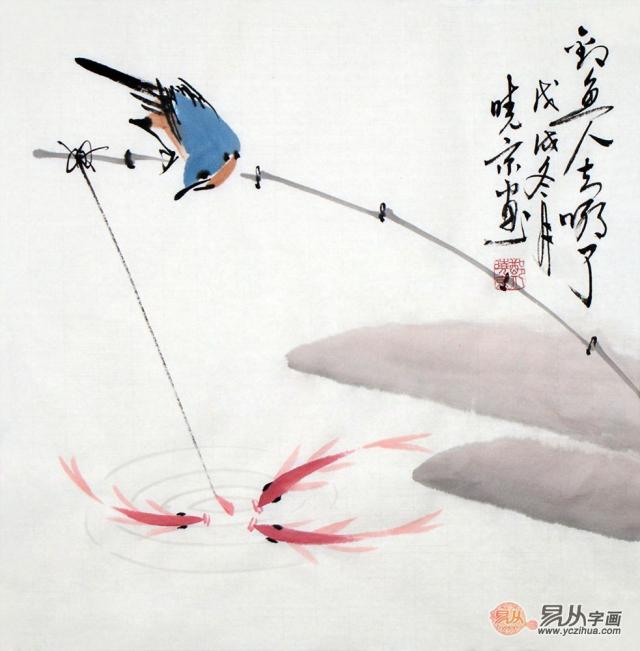 钓鱼人去哪了
戊戌冬月
晓京画
易从字画
www.yczihua.com